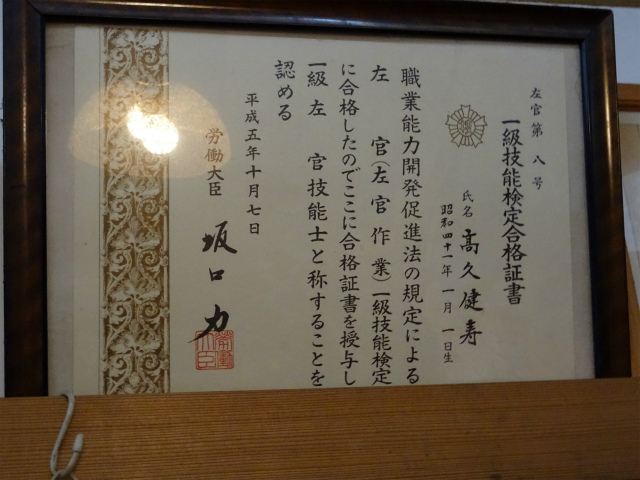 左官第八号
一級技能検定合格証書
氏名 髙久健寿
昭和四十一年一月一日生
職業能力開発促進法の規定による
左官(左官作業)一級技能検定
に合格したのでここに合格証書を授与し
一級左官技能士と称することを
認める
平成五年十月七日
労働大臣 坂口力